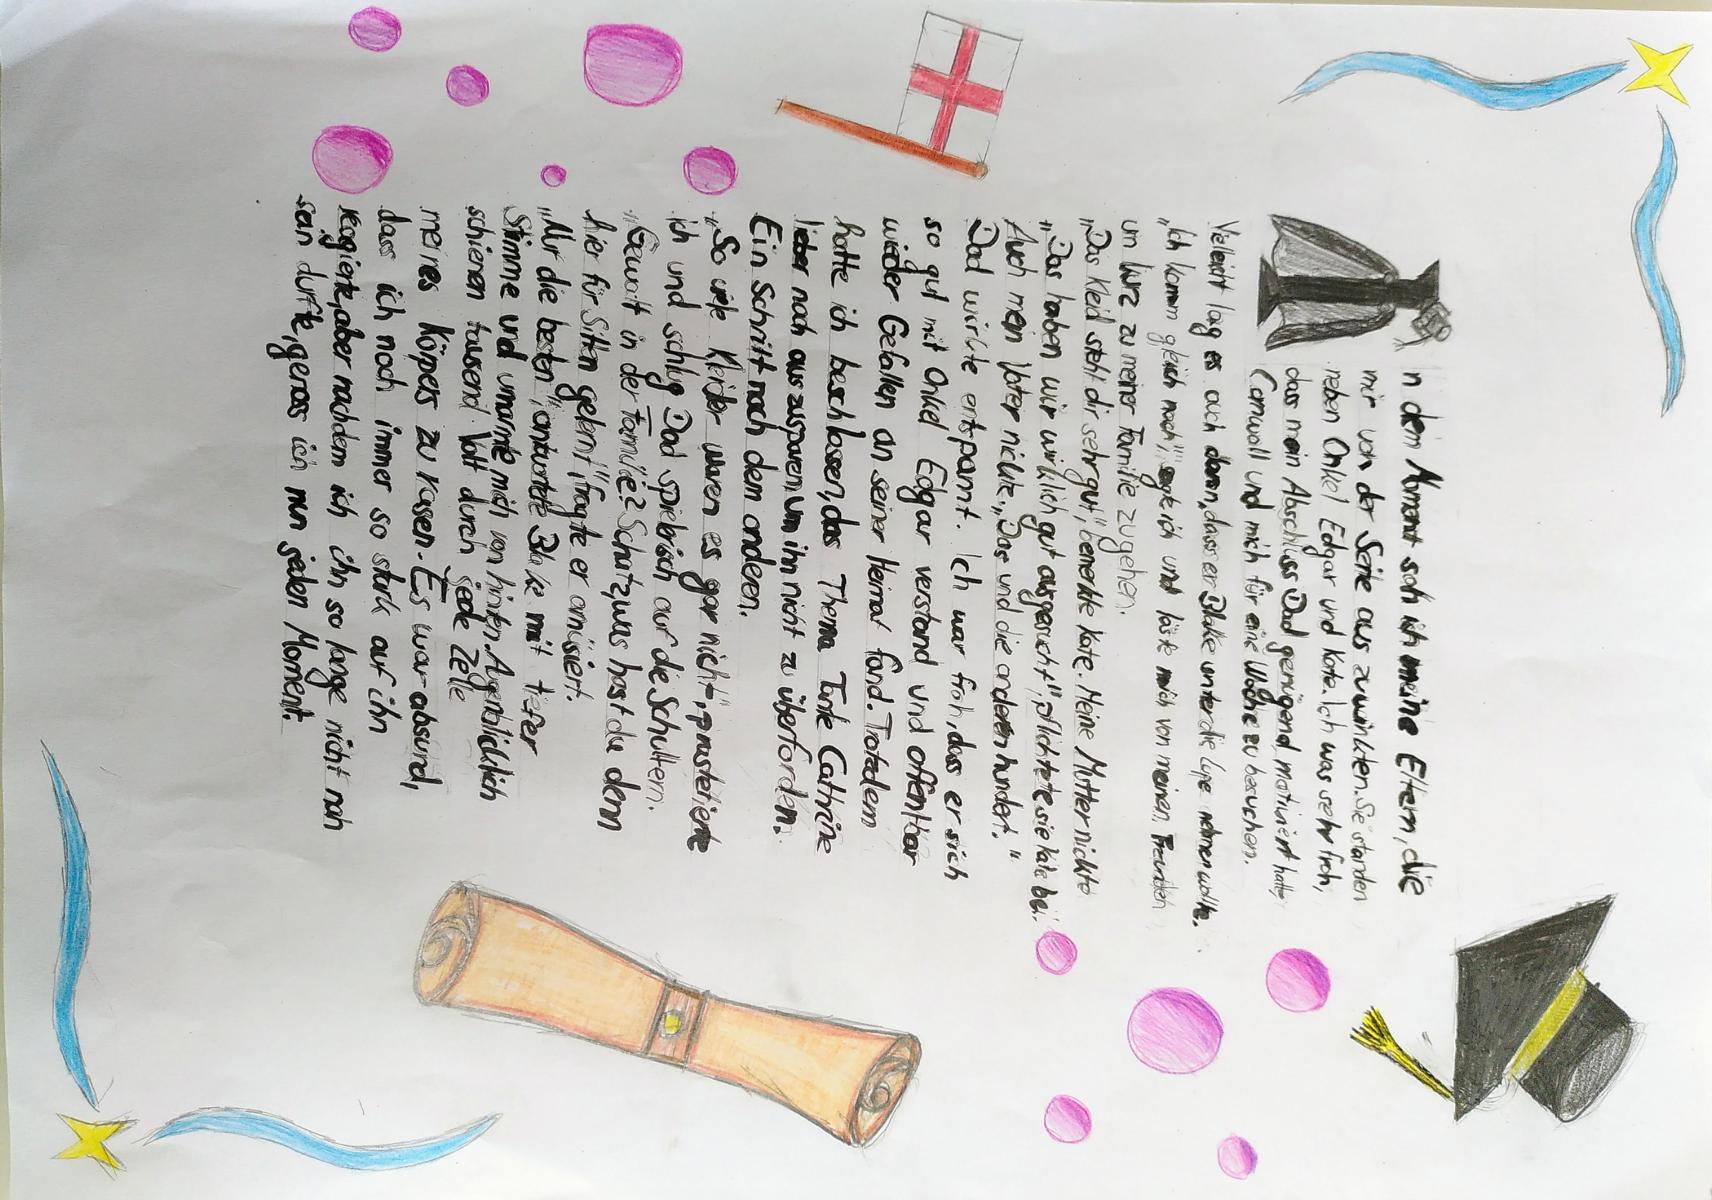 n dem Moment sah ich meine Eltern, die
mir von der Seite aus zuwinkten. Sie standen
neben Onkel Edgar und Kate. Ich was sehr froh,
dass mein Abschluss Dad genügend motiviert hatte,
Cornwall und mich für eine Woche zu besuchen.
Vielleicht lag es auch daran, dass er Blake unter die Lupe nehmen wollte.
„Ich komm gleich nach", sagte ich und löste mich von meinen Freunden,
um kurz zu meiner Familie zugehen.
„Das Kleid steht dir sehr gut", bemerkte Kate. Meine Mutter nickte
„Das haben wir wirklich gut ausgesucht", pflichtete sie Kate bei.
Auch mein Vater nickte. „Das und die anderen hundert."
Dad wirkte entspannt. Ich war froh, dass er sich
so gut mit Onkel Edgar verstand und offenbar
wieder Gefallen an seiner Heimat fand. Trotzdem
hatte ich beschlossen, das Thema Tante Cathrine
lieber noch auszusparen, um ihn nicht zu überfordern.
Ein Schritt nach dem anderen.
„So viele Kleider waren es gar nicht", prustete
ich und schlug Dad spielerisch auf die Schultern.
„Gewalt in der Familie? Schatz, was hast du denn
hier für Sitten gelernt", fragte er amüsiert.
„Nur die besten", antwortete Blake mit tiefer
Stimme und umarmte mich von hinten. Augenblicklich
schienen tausend Volt durch jede Zelle
meines Köpers zu rasen. Es war absurd,
dass ich noch immer so stark auf ihn
reagierte, aber nachdem ich ihn so lange nicht nah
sein durfte, genoss ich nun jeden Moment.